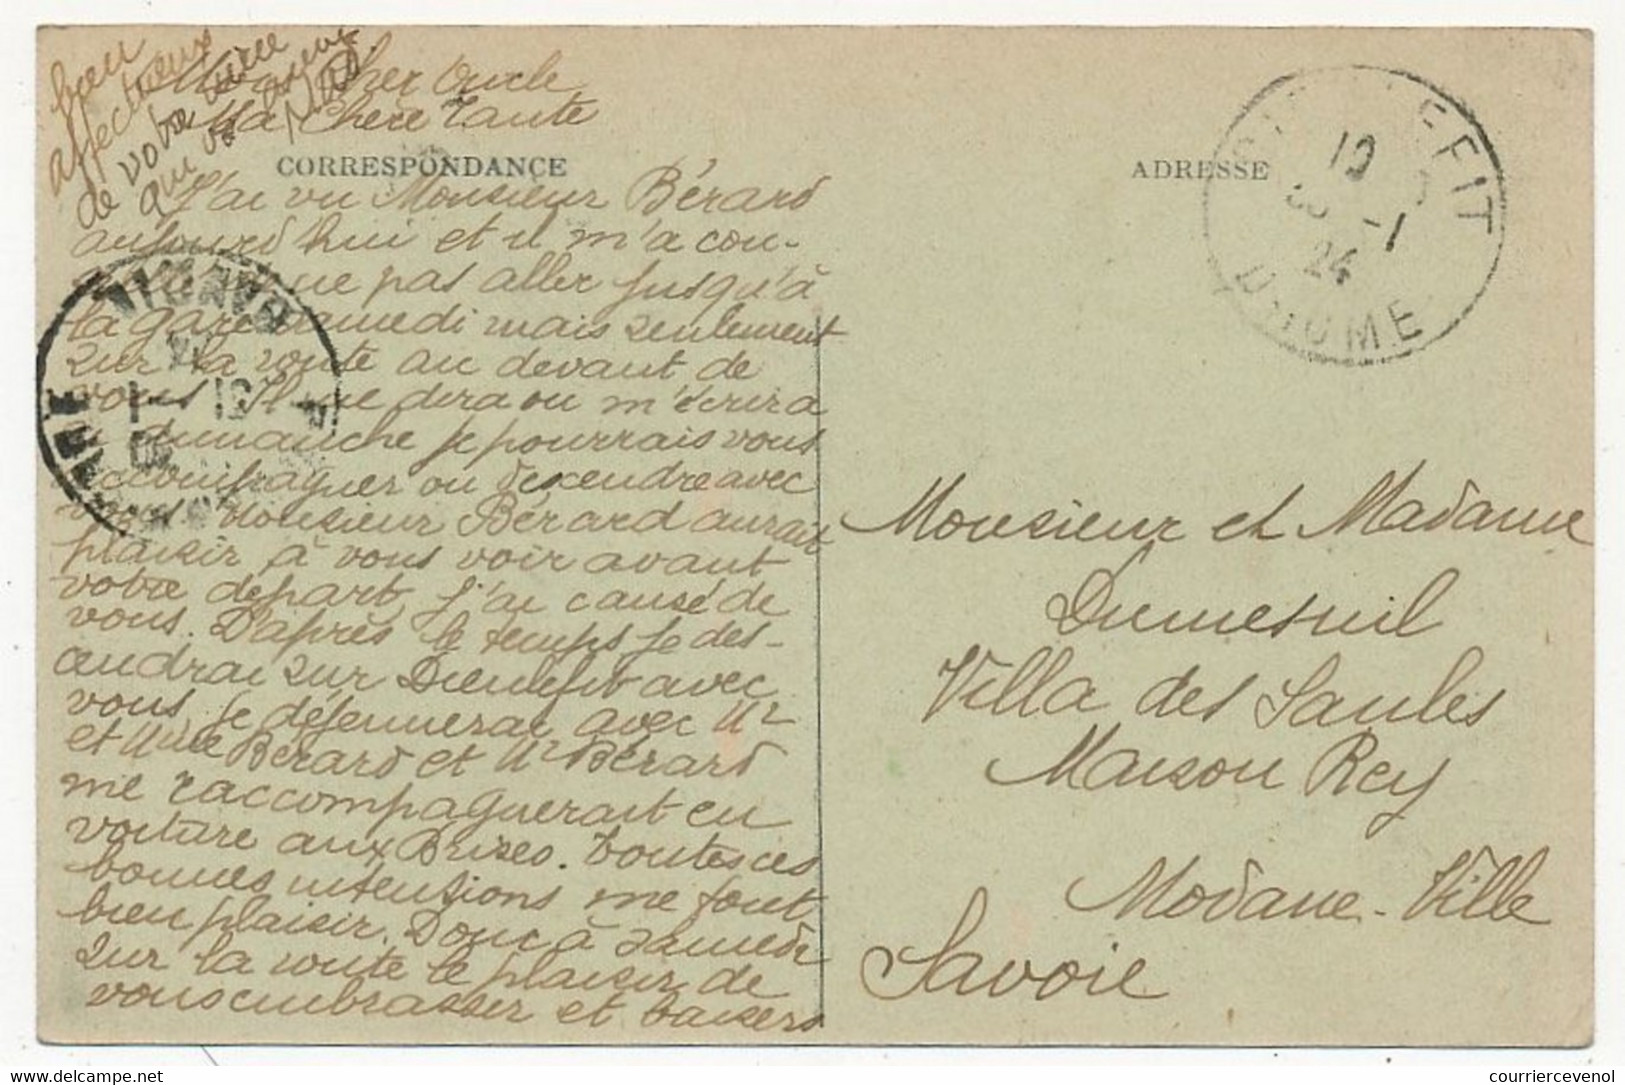 Mon Cher Oncle
Ma Chère Tante
CORRESPONDANCE
J'ai vu Monsieur Bérard
aujourd'hui et il m'a con-
que pas aller jusqu'à
la gare samedi mais seulement
sur la route au devant de
vous. Il me dira ou m'écrira
si dimanche je pourrais vous
accompagner ou descendre avec
vous Monsieur Bérard aurait
plaisir à vous voir avant
votre départ, j'ai causé de
vous. D'après le temps je des-
cendrai sur Dieulefit avec
vous, je déjeunerai avec Mr
et Mme Bérard et Mr Bérard
me raccompagnerait en
voiture aux Brises. Toutes ces
bonnes intentions me font
bien plaisir. Donc à samedi
sur la route le plaisir de
vous embrasser et baisers
bien
affectueux
de votre nièce
qui vous aime
ADRESSE
EFIT
10
-1
24
DROME
Monsieur et Madame
Dumesnil
Villa des Saules
Maison Rey
Modane-Ville
Savoie
delcampe.net
courriercevenol